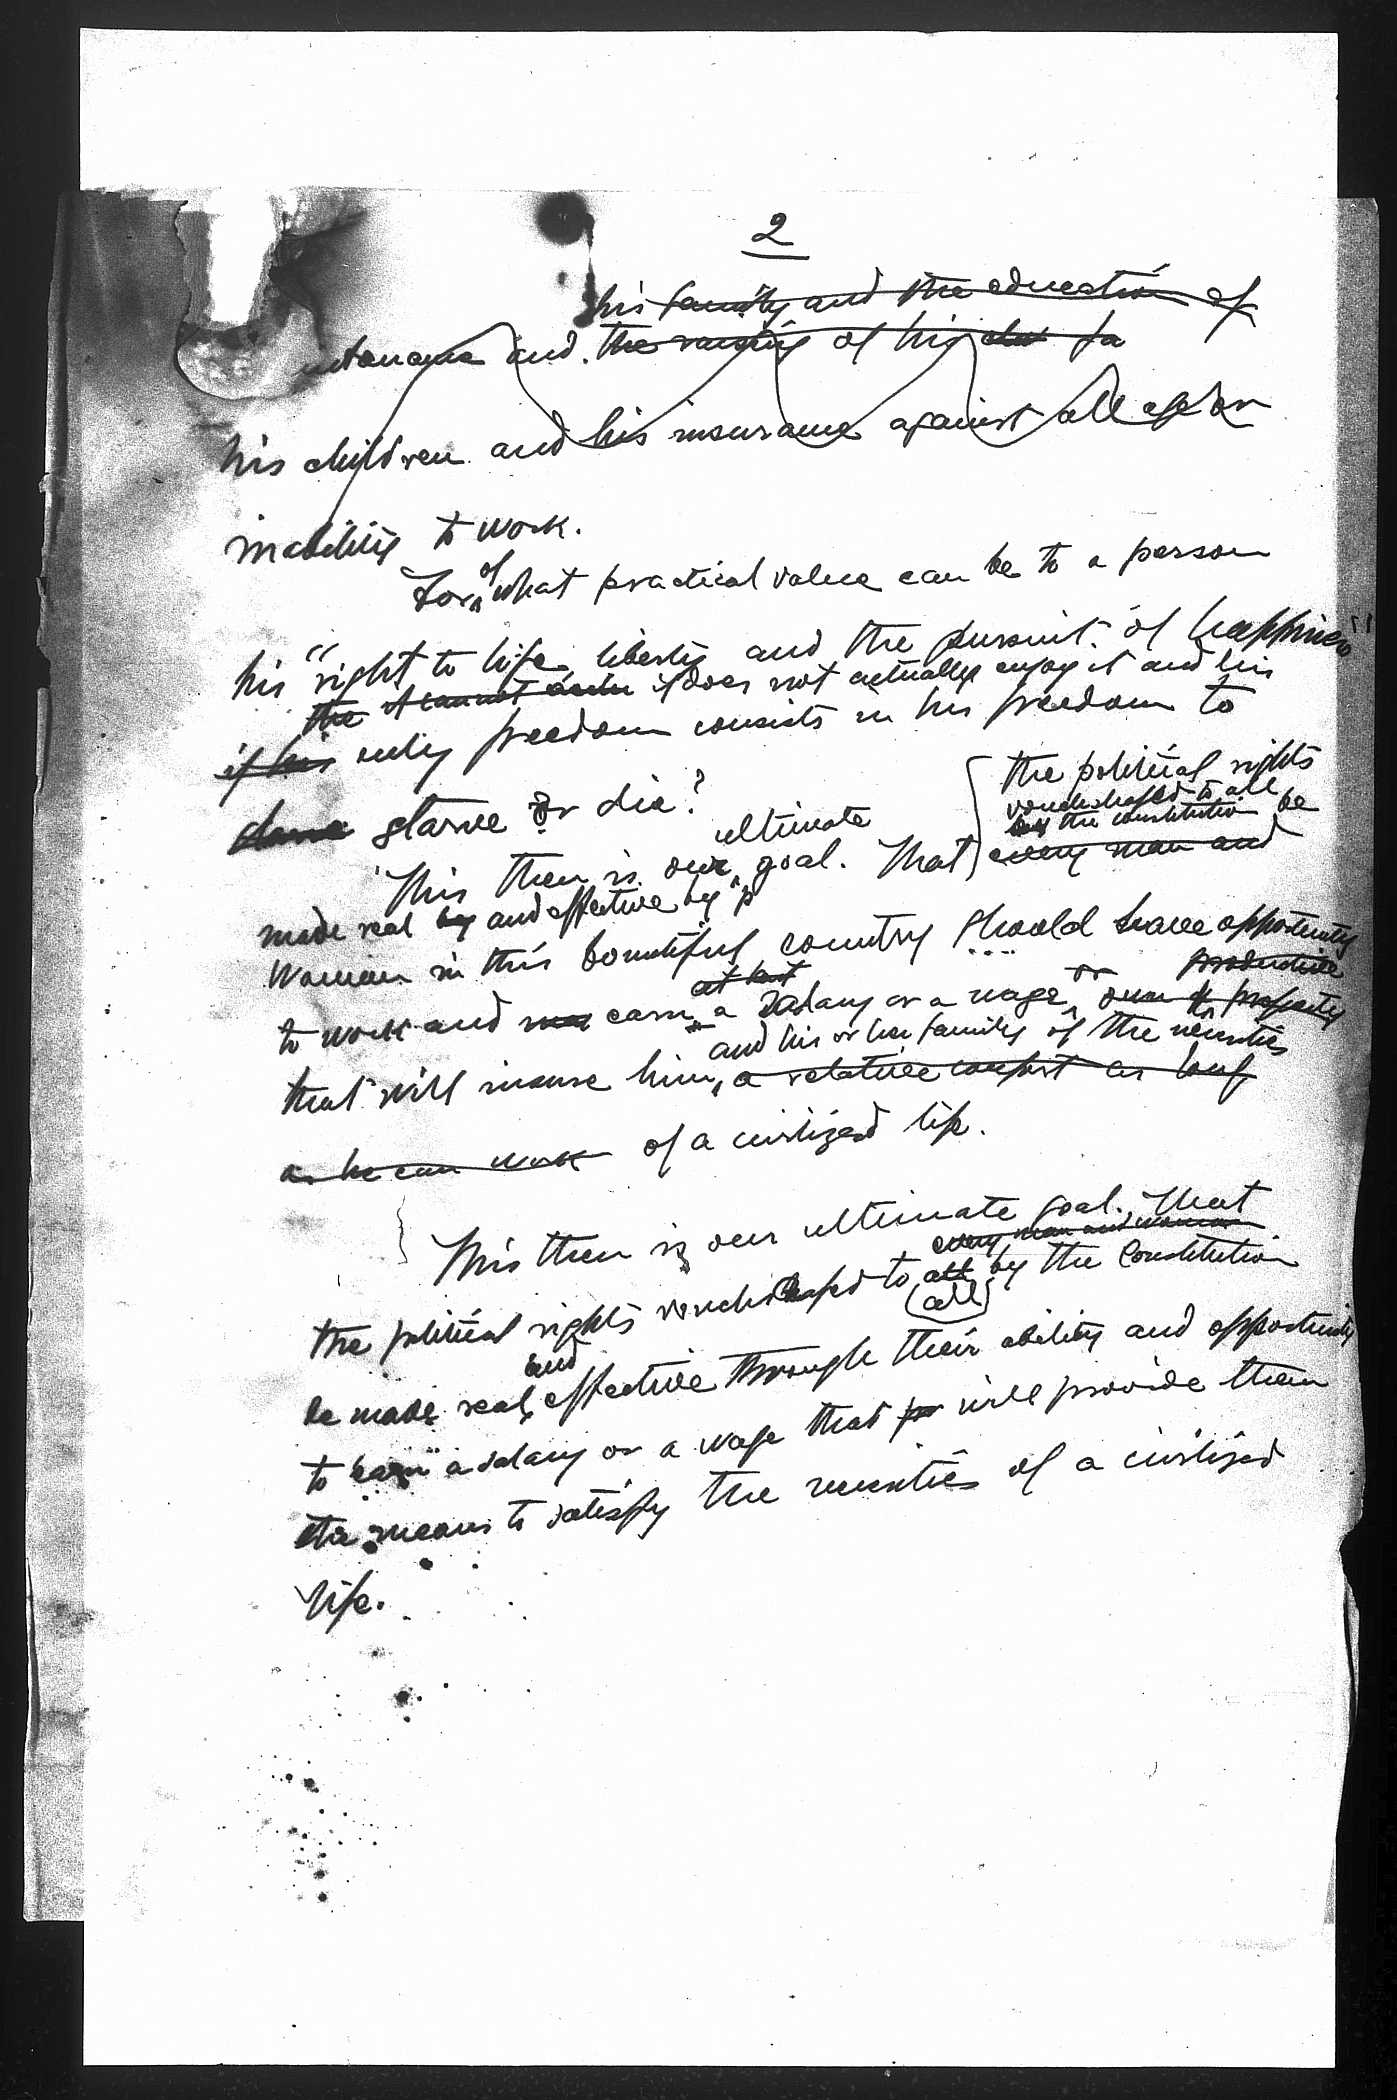 2
his family and the education of
and the raising of his fa
his children and his insurance against old age or
inability to work.
of
For what practical value can be to a person
his "right to life liberty and the pursuit of happiness"
the it cannot if does not actually enjoy it and his
if his only freedom consists in his freedom to
starve or die?
the political rights
vouchsafed to all
by the constitution be
ultimate
This then is our goal. That every man and
made real by and effective by
woman in this bountiful country should have opportunity
at least or productive
to work and earn a salary or a wage own property
and his or her family of the necessities
that will insure him, a relative comfort as long
as he can work of a civilized life.
This then is our ultimate goal. That
every man and woman
the political rights vouchsafed to all by the Constitution
(all)
and
be made real effective through their ability and opportunity
to earn a salary or a wage that will provide them
the means to satisfy the necessities of a civilized
life.